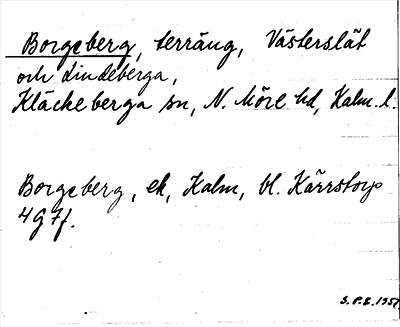 Borgeberg, terräng, Västerslät
och Lindeberga,
Kläckeberga sn, N. Möre hd, Kalm. l.
Borgeberg, ek, Kalm, bl. Kärrstorp
4G 7f.
S.P.E. 1957